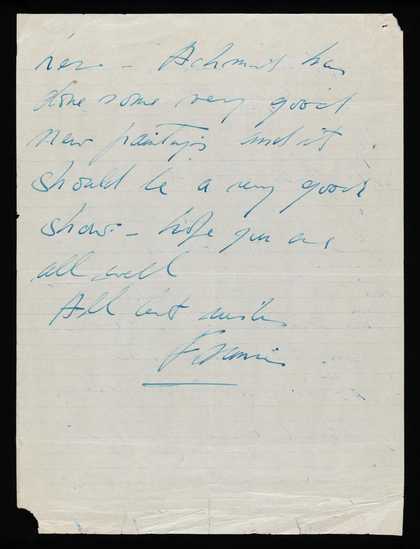 here – Achmed has
done some very good
new paintings and it
should be a very good
show – hope you are
all well
All best wishes
Francis